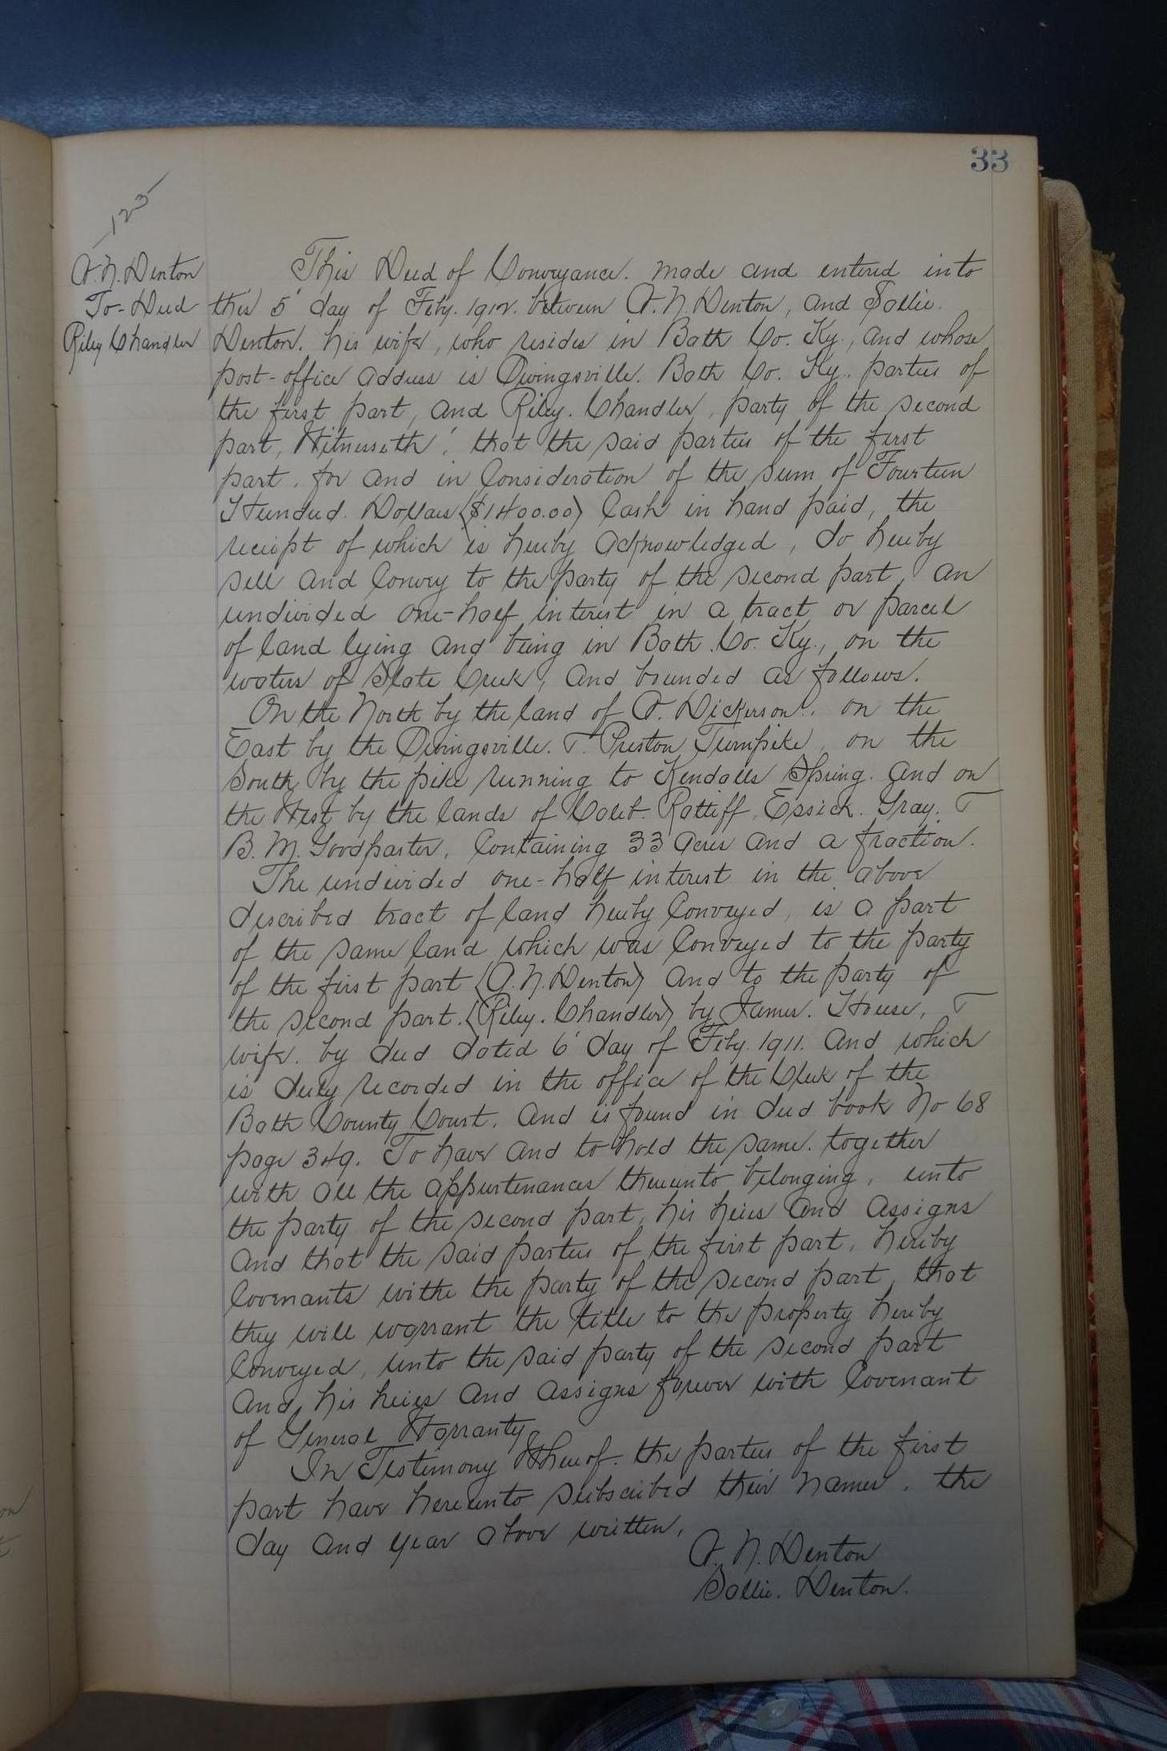 33
123
A. N. Denton
To-Deed
Riley Chandler
This Deed of Conveyance. made and entered into
this 5' day of Feby. 1912. between A. N. Denton, and Sallie.
Denton. his wife, who resides in Bath Co. Ky., and whose
post-office address is Owingsville. Bath Co. Ky. parties of
the first part, and Riley. Chandler, party of the second
part, Witnesseth; that the said parties of the first
part. for and in Consideration of the sum of Fourteen
Hundred. Dollars ($1400.00) Cash in hand paid, the
receipt of which is hereby acknowledged, do hereby
sell and Convey to the party of the second part, an
undivided one-half interest in a tract or parcel
of land lying and being in Bath Co. Ky., on the
waters of Slate Creek, and bounded as follows.
On the North by the land of A. Dickerson. on the
East by the Owingsville. & Preston Turnpike, on the
South by the pike running to Kendalls Spring. and on
the West by the lands of Caleb. Ratliff, Essick. Gray. &
B. M. Goodpaster. Containing 33 acres and a fraction.
The undivided one-half interest in the above
described tract of land hereby Conveyed, is a part
of the same land which was Conveyed to the party
of the first part (A. N. Denton) and to the party of
the second part. (Riley. Chandler) by James. House, &
wife. by deed dated 6' day of Feby. 1911. and which
is duly recorded in the office of the Clerk of the
Bath County Court. and is found in deed book No 68
page 349. To have and to hold the same. together
with all the appurtenances thereunto belonging, unto
the party of the second part, his heirs and assigns
and that the said parties of the first part, hereby
Covenants withe the party of the second part, that
they will warrant the title to the property hereby
Conveyed, unto the said party of the second part
and, his heirs and assigns forever with Covenant
of General Warranty.
In Testimony Whereof. the parties of the first
part have hereunto subscribed their names. the
day and year above written.
A. N. Denton
Sallie. Denton.